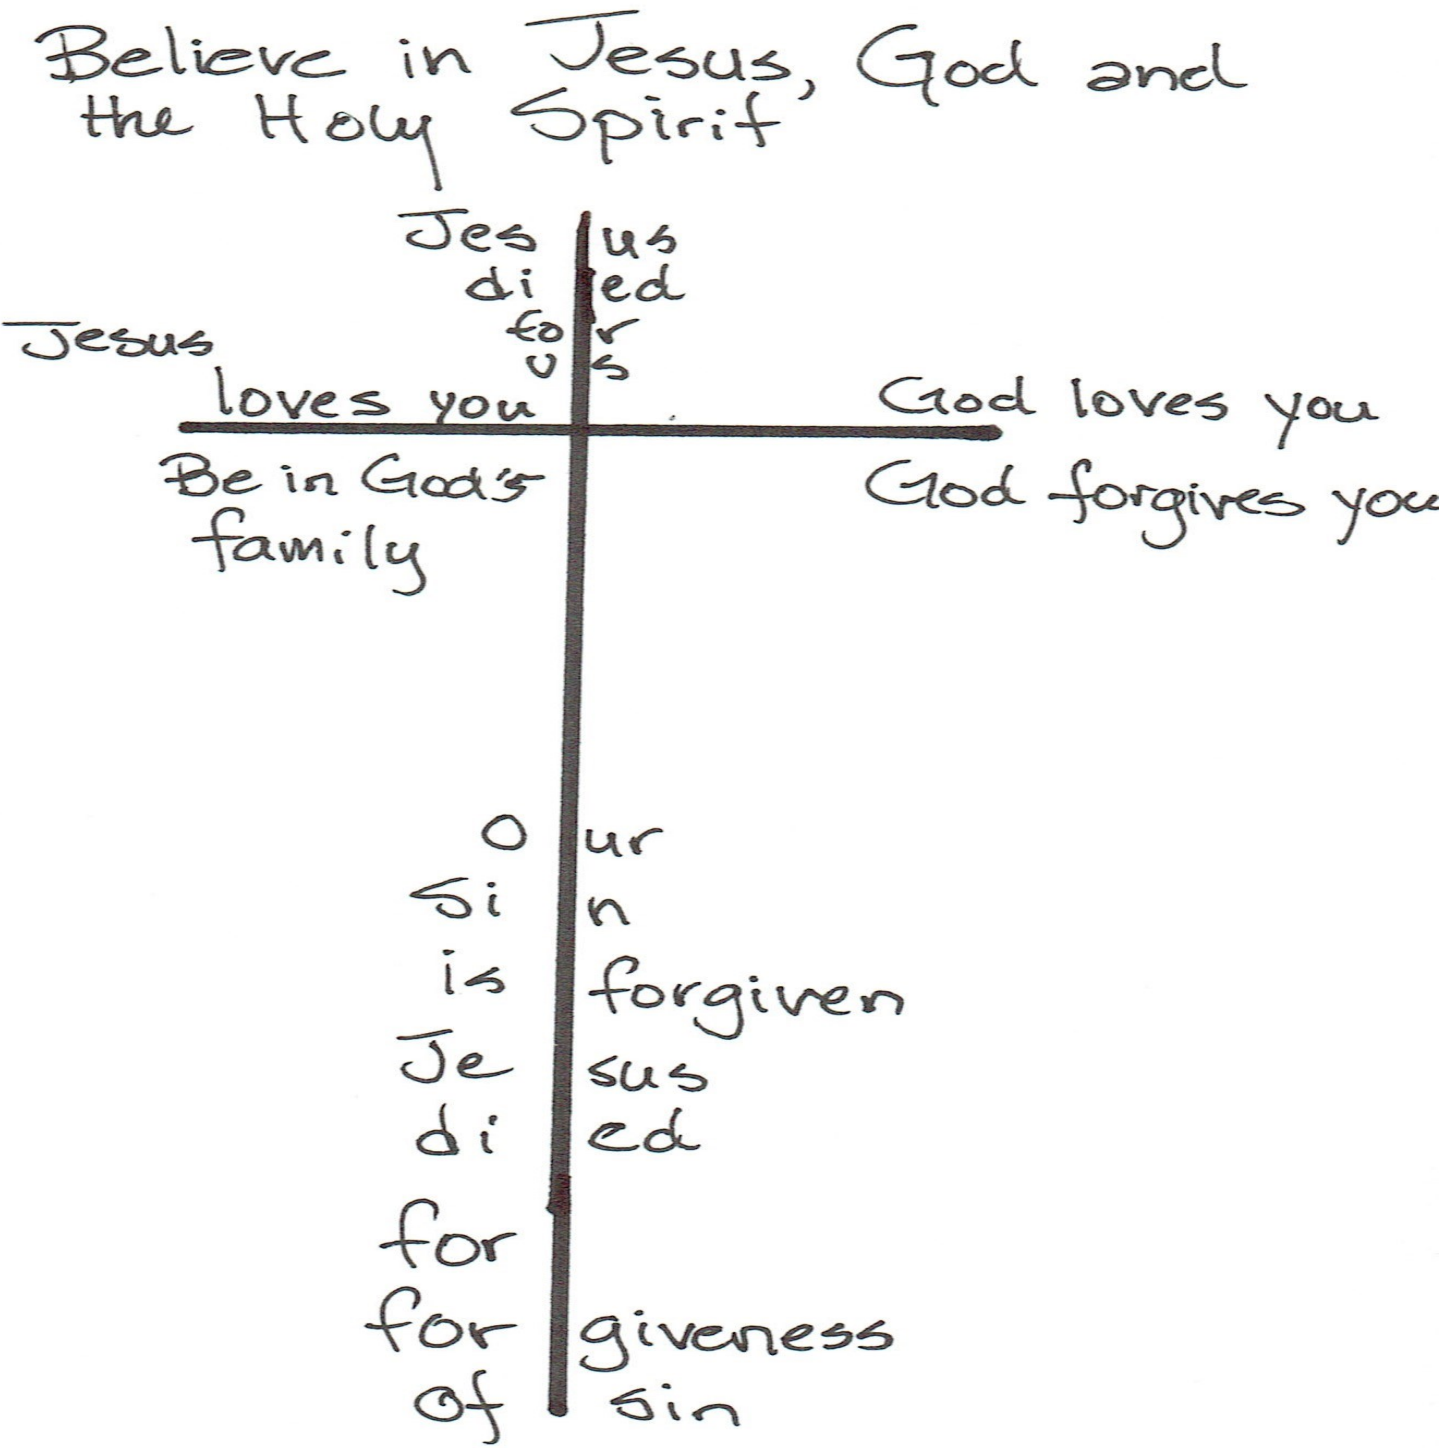 Believe in Jesus, God and
the Holy Spirit
Jes us
di ed
fo r
u s
Jesus
loves you
God loves you
Be in God's
family
God forgives you
O ur
Si n
is forgiven
Je sus
di ed
for
for giveness
of sin